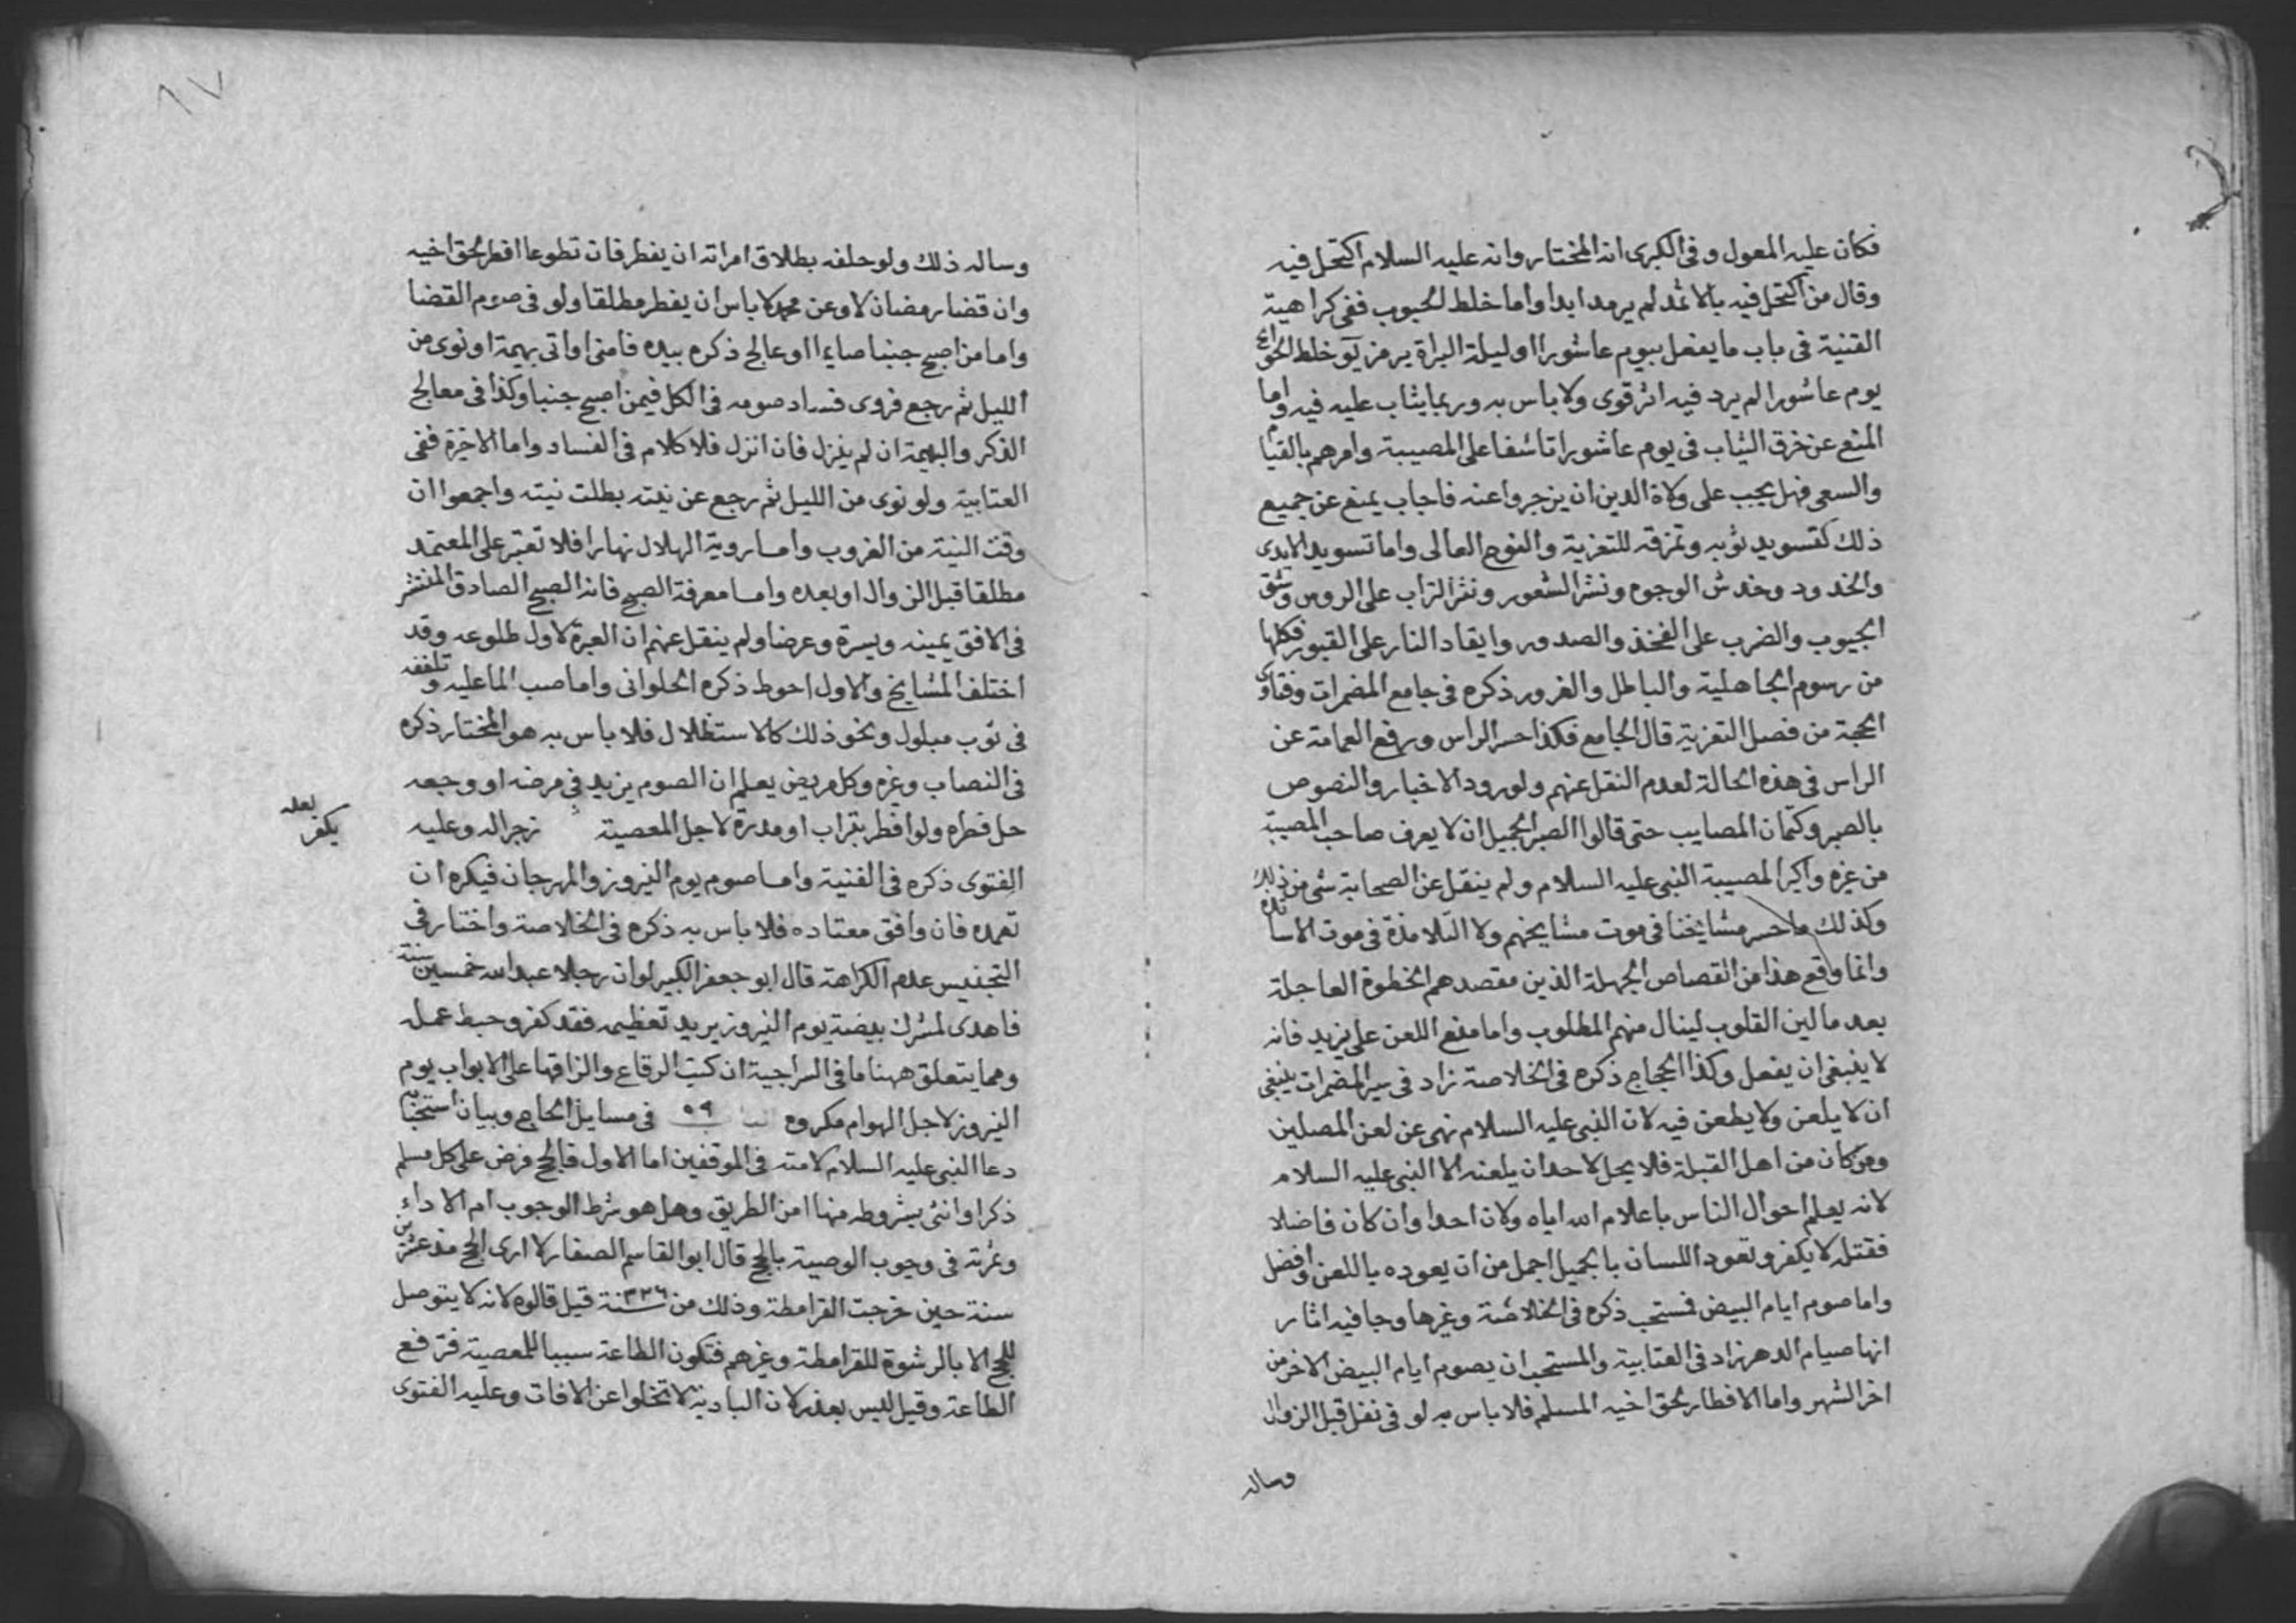 فكان عليه المعول وفى الكبرى انه المختار وانه عليه السلام اكتحل فيه
وقال من اكتحل فيه بالاثمد لم يرمد ابدا واما خلط الحبوب ففى كراهية
القنية فى باب ما يفعل بيوم عاشورا او ليلة البراة يرمز خلط
يوم عاشورا لم يرد فيه اثر قوى ولا باس به وربما يثاب عليه فيه واما
المنع عن خرق الثياب فى يوم عاشورا تاسفا على المصيبة وامرهم بالقيام
والسعى فهل يجب على ولاة الدين ان يزجروا عنه فاجاب يمنع عن جميع
ذلك كتسويد ثوبه وتمزقه للتعزية والنوح العالى واما تسويد الايدى
والخدود وخدش الوجوه ونشر الشعور ونثر التراب على الروس وشق
الجيوب والضرب على الفخذ والصدور وايقاد النار على القبور فكلها
من رسوم الجاهلية والباطل والغرور ذكره فى جامع المضمرات وفتاوى
الحجة من فصل التعزية قال الجامع فكذا حسر الراس ورفع العمامة عن
الراس فى هذه الحالة لعدم النقل عنهم ولورود الاخبار والنصوص
بالصبر وكتمان المصايب حتى قالوا الصبر الجميل ان لا يعرف صاحب المصيبة
من غيره واكبر المصيبة النبى عليه السلام ولم ينقل عن الصحابة شى من ذلك
وكذلك ما حسر مشايخنا فى موت مشايخهم ولا التلامذة فى موت الاساتذة
وانما وقع هذا من القصاص الجهلة الذين مقصدهم الخطوة العاجلة
بعد ما لين القلوب لينال منهم المطلوب واما منع اللعن على يزيد فانه
لا ينبغى ان يفعل وكذا الحجاج ذكره فى الخلاصة زاد فى سير المضمرات ينبغى
ان لا يلعن ولا يطعن فيه لان النبى عليه السلام نهى عن لعن المصلين
ومن كان من اهل القبلة فلا يحل لاحد ان يلعنه الا النبى عليه السلام
لانه يعلم احوال الناس باعلام الله اياه ولان احدا وان كان فاضلا
فقتل لا يكفر وتعود اللسان بالجميل اجمل من ان يعوده باللعن وافضل
واما صوم ايام البيض فستحب ذكره فى الخلاصة وغيرها وجا فيه اثار
انها صيام الدهر زاد فى العتابية والمستحب ان يصوم ايام البيض الاخر من
اخر الشهر واما الافطار لحق اخيه المسلم فلا باس به لو فى نفل قبل الزوال
وساله
وساله ذلك ولو حلفه بطلاق امراته ان يفطر فان تطوعا افطر لحق اخيه
وان قضا رمضان لا وعن محمد لا باس ان يفطر مطلقا ولو فى صوم القضا
واما من اصبح جنبا صايما او عالج ذكره بيده فامنى او اتى بهيمة او نوى من
الليل ثم رجع فروى فساد صومه فى الكل فيمن اصبح جنبا وكذا فى معالج
الذكر والبهيمة ان لم ينزل فان انزل فلا كلام فى الفساد واما الاخيرة ففى
العتابية ولو نوى من الليل ثم رجع عن نيته بطلت نيته واجمعوا ان
وقت النية من الغروب واما روية الهلال نهارا فلا تعتبر على المعتمد
مطلقا قبل الزوال او بعده واما معرفة الصبح فانه الصبح الصادق المنتشر
فى الافق يمينه ويسرة وعرضا ولم ينقل عنهم ان العبرة لاول طلوعه وقد
اختلف المشايخ والاول احوط ذكره الحلوانى واما صب الما عليه وتلففه
فى ثوب مبلول ونحو ذلك كالاستظلال فلا باس به هو المختار ذكره
فى النصاب وغيره وكل مريض يعلم ان الصوم يزيد فى مرضه او وجعه
حل فطره ولو افطر بتراب او مدرة لاجل المعصية زجرا له وعليه
بعله
يكفر
الفتوى ذكره فى القنية واما صوم يوم النيروز والمهرجان فيكره ان
تعمده فان وافق معتاده فلا باس به ذكره فى الخلاصة واختار فى
التجنيس عدم الكراهة قال ابو جعفر الكبير لو ان رجلا عبد الله خمسين سنة
فاهدى لمشرك بيضة يوم النيروز يريد تعظيمه فقد كفر وحبط عمله
ومما يتعلق ههنا ما فى السراجية ان كتب الرقاع والزاقها على الابواب يوم
النيروز لاجل الهوام مكروه الباب ٥٩ فى مسايل الحاج وبيان استجابة
دعا النبى عليه السلام لامته فى الموقفين اما الاول فالحج فرض على كل مسلم
ذكرا وانثى بشروطه منها امن الطريق وهل هو شرط الوجوب ام الاداء
وثمرته فى وجوب الوصية بالحج قال ابو القاسم الصفار لا ارى الحج منذ عشرين
سنة حين خرجت القرامطة وذلك من سنة ٣٢٦ قيل قالوه لانه لا يتوصل
للحج الا بالرشوة للقرامطة وغيرهم فتكون الطاعة سببا للمعصية فترفع
الطاعة وقيل ليس بعذر لان البادية لا تخلوا عن الافات وعليه الفتوى